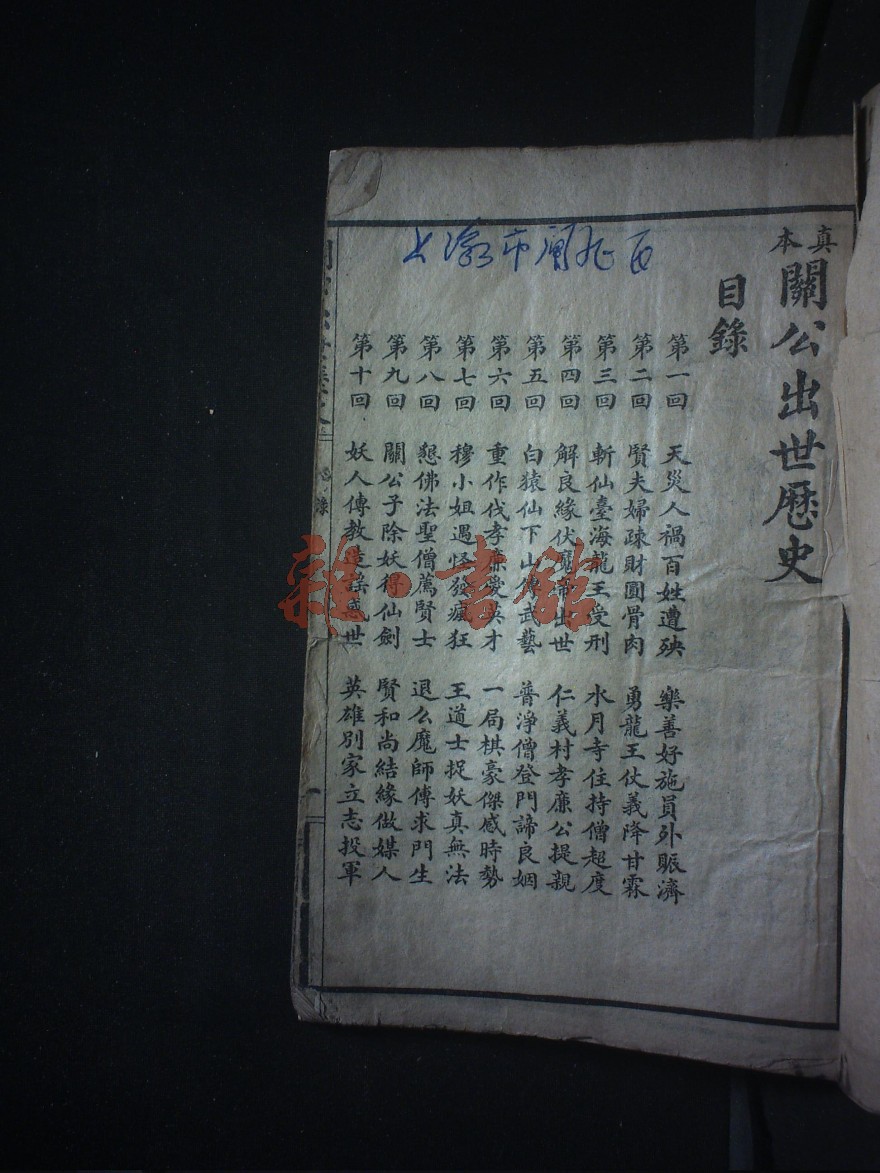 真本
關公出世歷史
目錄
第一回 天災人禍百姓遭殃 樂善好施員外賑濟
第二回 賢夫婦疎財圓骨肉 勇龍王仗義降甘霖
第三回 斬仙臺海龍王受刑 水月寺住持僧超度
第四回 解良緣伏魔帝出世 仁義村孝廉公提親
第五回 白猿仙下山傳武藝 普淨僧登門諦良姻
第六回 重作伐孝廉愛英才 一局棋豪傑感時勢
第七回 穆小姐遇怪發瘋狂 王道士捉妖真無法
第八回 懇佛法聖僧薦賢士 退么魔師傅求門生
第九回 關公子除妖得仙劍 賢和尚結緣做媒人
第十回 妖人傳教造謠惑世 英雄別家立志投軍
雜·書館